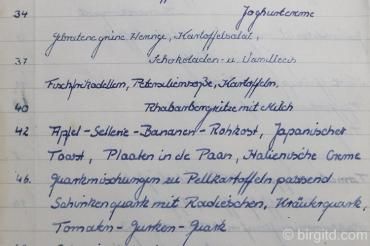 34 Joghurtcreme
Gebratene grüne Heringe, Kartoffelsalat,
37 Schokoladen- u. Vanilleeis
Fischfrikadellen, Petersiliensoße, Kartoffeln,
40 Rhabarbergrütze mit Milch
42 Äpfel-Sellerie-Bananen-Rohkost, Japanischer
Toast, Plaaten in de Paan, Italienische Creme
46. Quarkmischungen zu Pellkartoffeln passend
Schinkenquark mit Radieschen, Kräuterquark,
Tomaten-Gurken-Quark
© birgitd.com